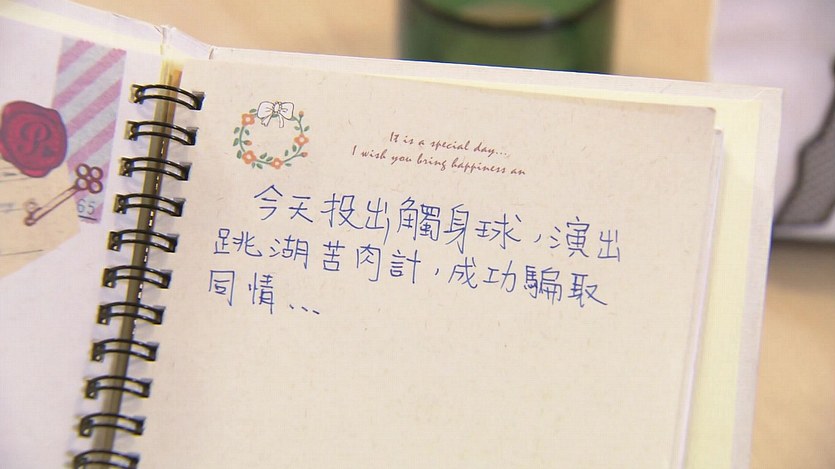 It is a special day...
I wish you bring happiness an
今天投出觸身球，演出
跳湖苦肉計，成功騙取
同情...
P
65